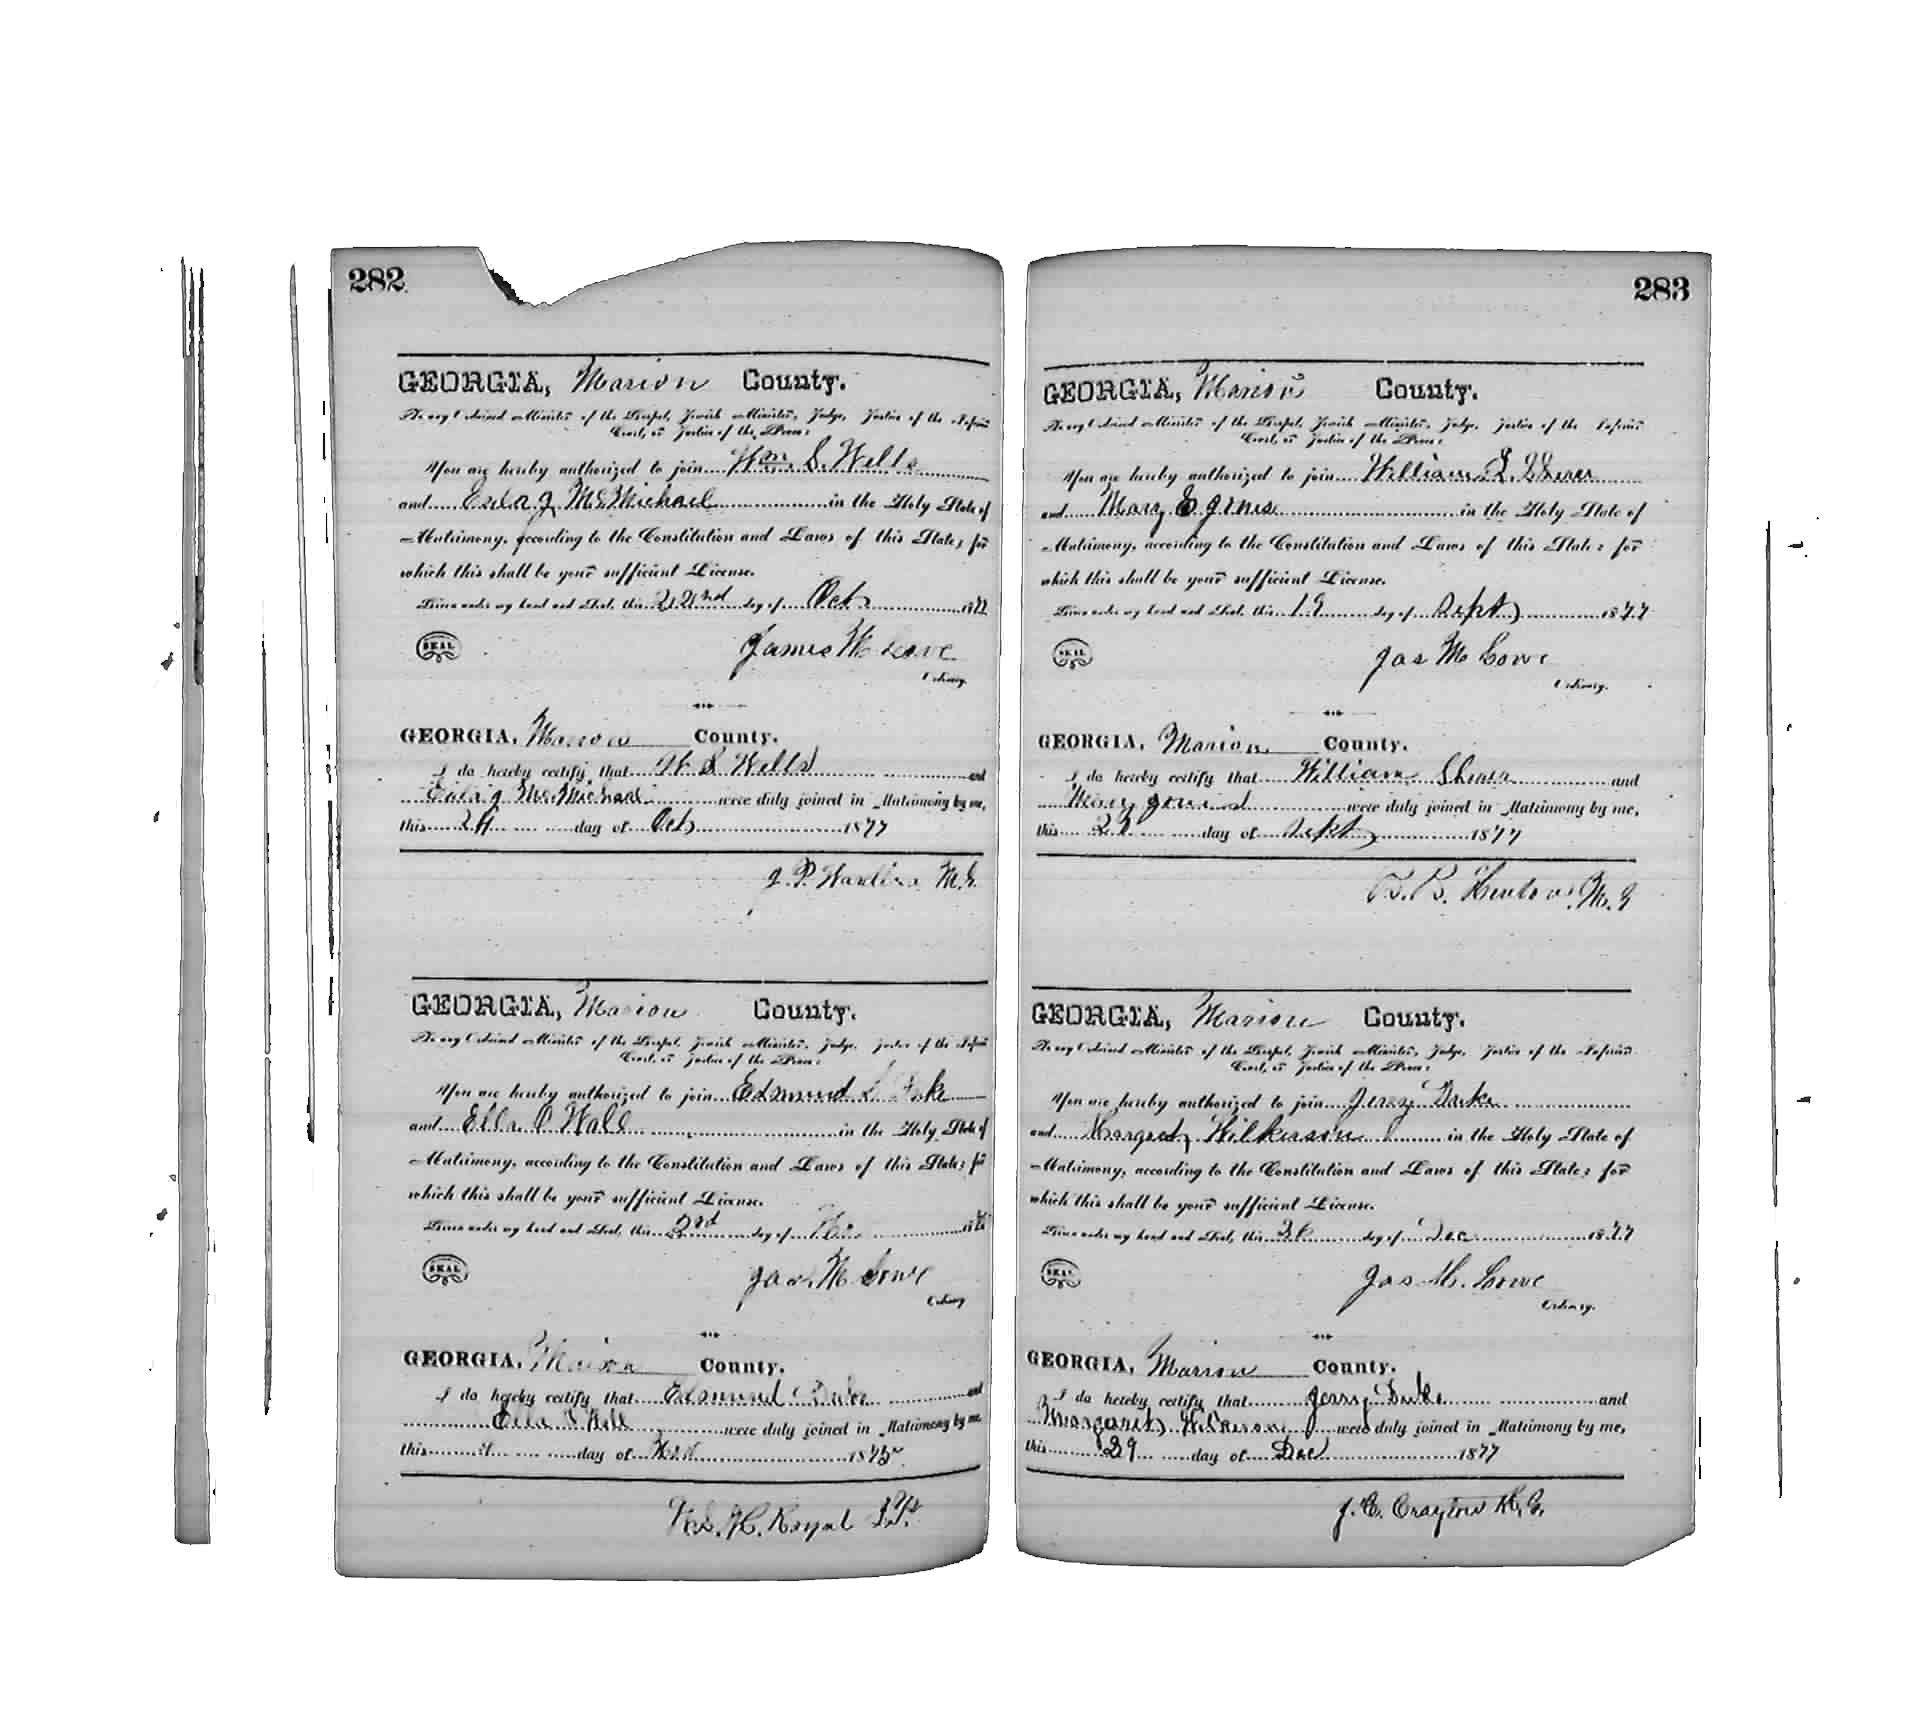 282
GEORGIA, Marion County.
To any Ordained Minister of the Gospel, Jewish Minister, Judge, Justice of the Inferior
Court, or Justice of the Peace:
You are hereby authorized to join Wm. S. Wells
and Eula J McMichael in the Holy State of
Matrimony, according to the Constitution and Laws of this State; for
which this shall be your sufficient License.
Given under my hand and Seal, this 22nd day of Oct 1877
SEAL
James M Lowe
Ordinary.
GEORGIA, Marion County.
I do hereby certify that W S Wells and
Eula J McMichael were duly joined in Matrimony by me,
this 24 day of Oct 1877
J. P. M.G.
GEORGIA, Marion County.
To any Ordained Minister of the Gospel, Jewish Minister, Judge, Justice of the Inferior
Court, or Justice of the Peace:
You are hereby authorized to join Edmund
and Ella O Wall in the Holy State of
Matrimony, according to the Constitution and Laws of this State; for
which this shall be your sufficient License.
Given under my hand and Seal, this day of
SEAL
Jas. M Lowe
Ordinary
GEORGIA, Marion County.
I do hereby certify that Edmund and
Ella were duly joined in Matrimony by me,
this day of 1875
Royal J.P.
283
GEORGIA, Marion County.
To any Ordained Minister of the Gospel, Jewish Minister, Judge, Justice of the Inferior
Court, or Justice of the Peace:
You are hereby authorized to join William
and Mary E Jones in the Holy State of
Matrimony, according to the Constitution and Laws of this State; for
which this shall be your sufficient License.
Given under my hand and Seal, this 19 day of Sept 1877
SEAL
Jas M Lowe
Ordinary.
GEORGIA, Marion County.
I do hereby certify that William and
Mary Jones were duly joined in Matrimony by me,
this day of Sept 1877
M.G
GEORGIA, Marion County.
To any Ordained Minister of the Gospel, Jewish Minister, Judge, Justice of the Inferior
Court, or Justice of the Peace:
You are hereby authorized to join Jerry
and Margaret Wilkerson in the Holy State of
Matrimony, according to the Constitution and Laws of this State; for
which this shall be your sufficient License.
Given under my hand and Seal, this 26 day of Dec 1877
SEAL
Jas M. Lowe
Ordinary.
GEORGIA, Marion County.
I do hereby certify that Jerry and
Margaret Wilkerson were duly joined in Matrimony by me,
this 29 day of Dec 1877
J. C. Crayton M.G.